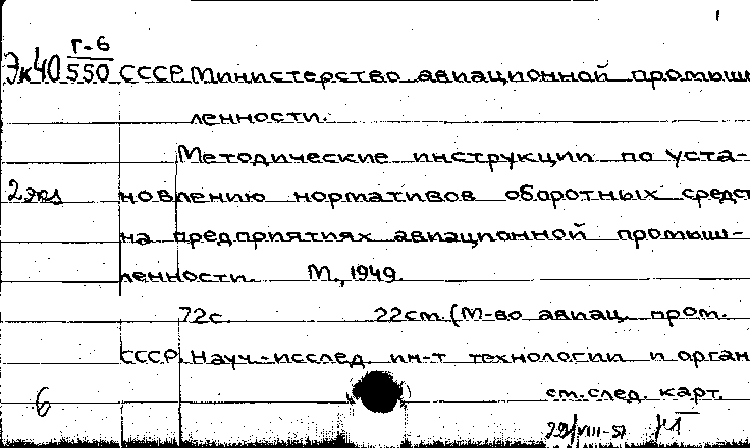 Г-6
Эк40 550 СССР. Министерство авиационной промыш
ленности.
Методические инструкции по уста-
2 экз новлению нормативов оборотных средст
на предприятиях авиационной промыш-
ленности. М., 1949.
72с. 22см. (М-во авиац. пром.
СССР. Науч.-исслед. ин-т технологии и орган
см. след. карт.
6
29/VIII-51